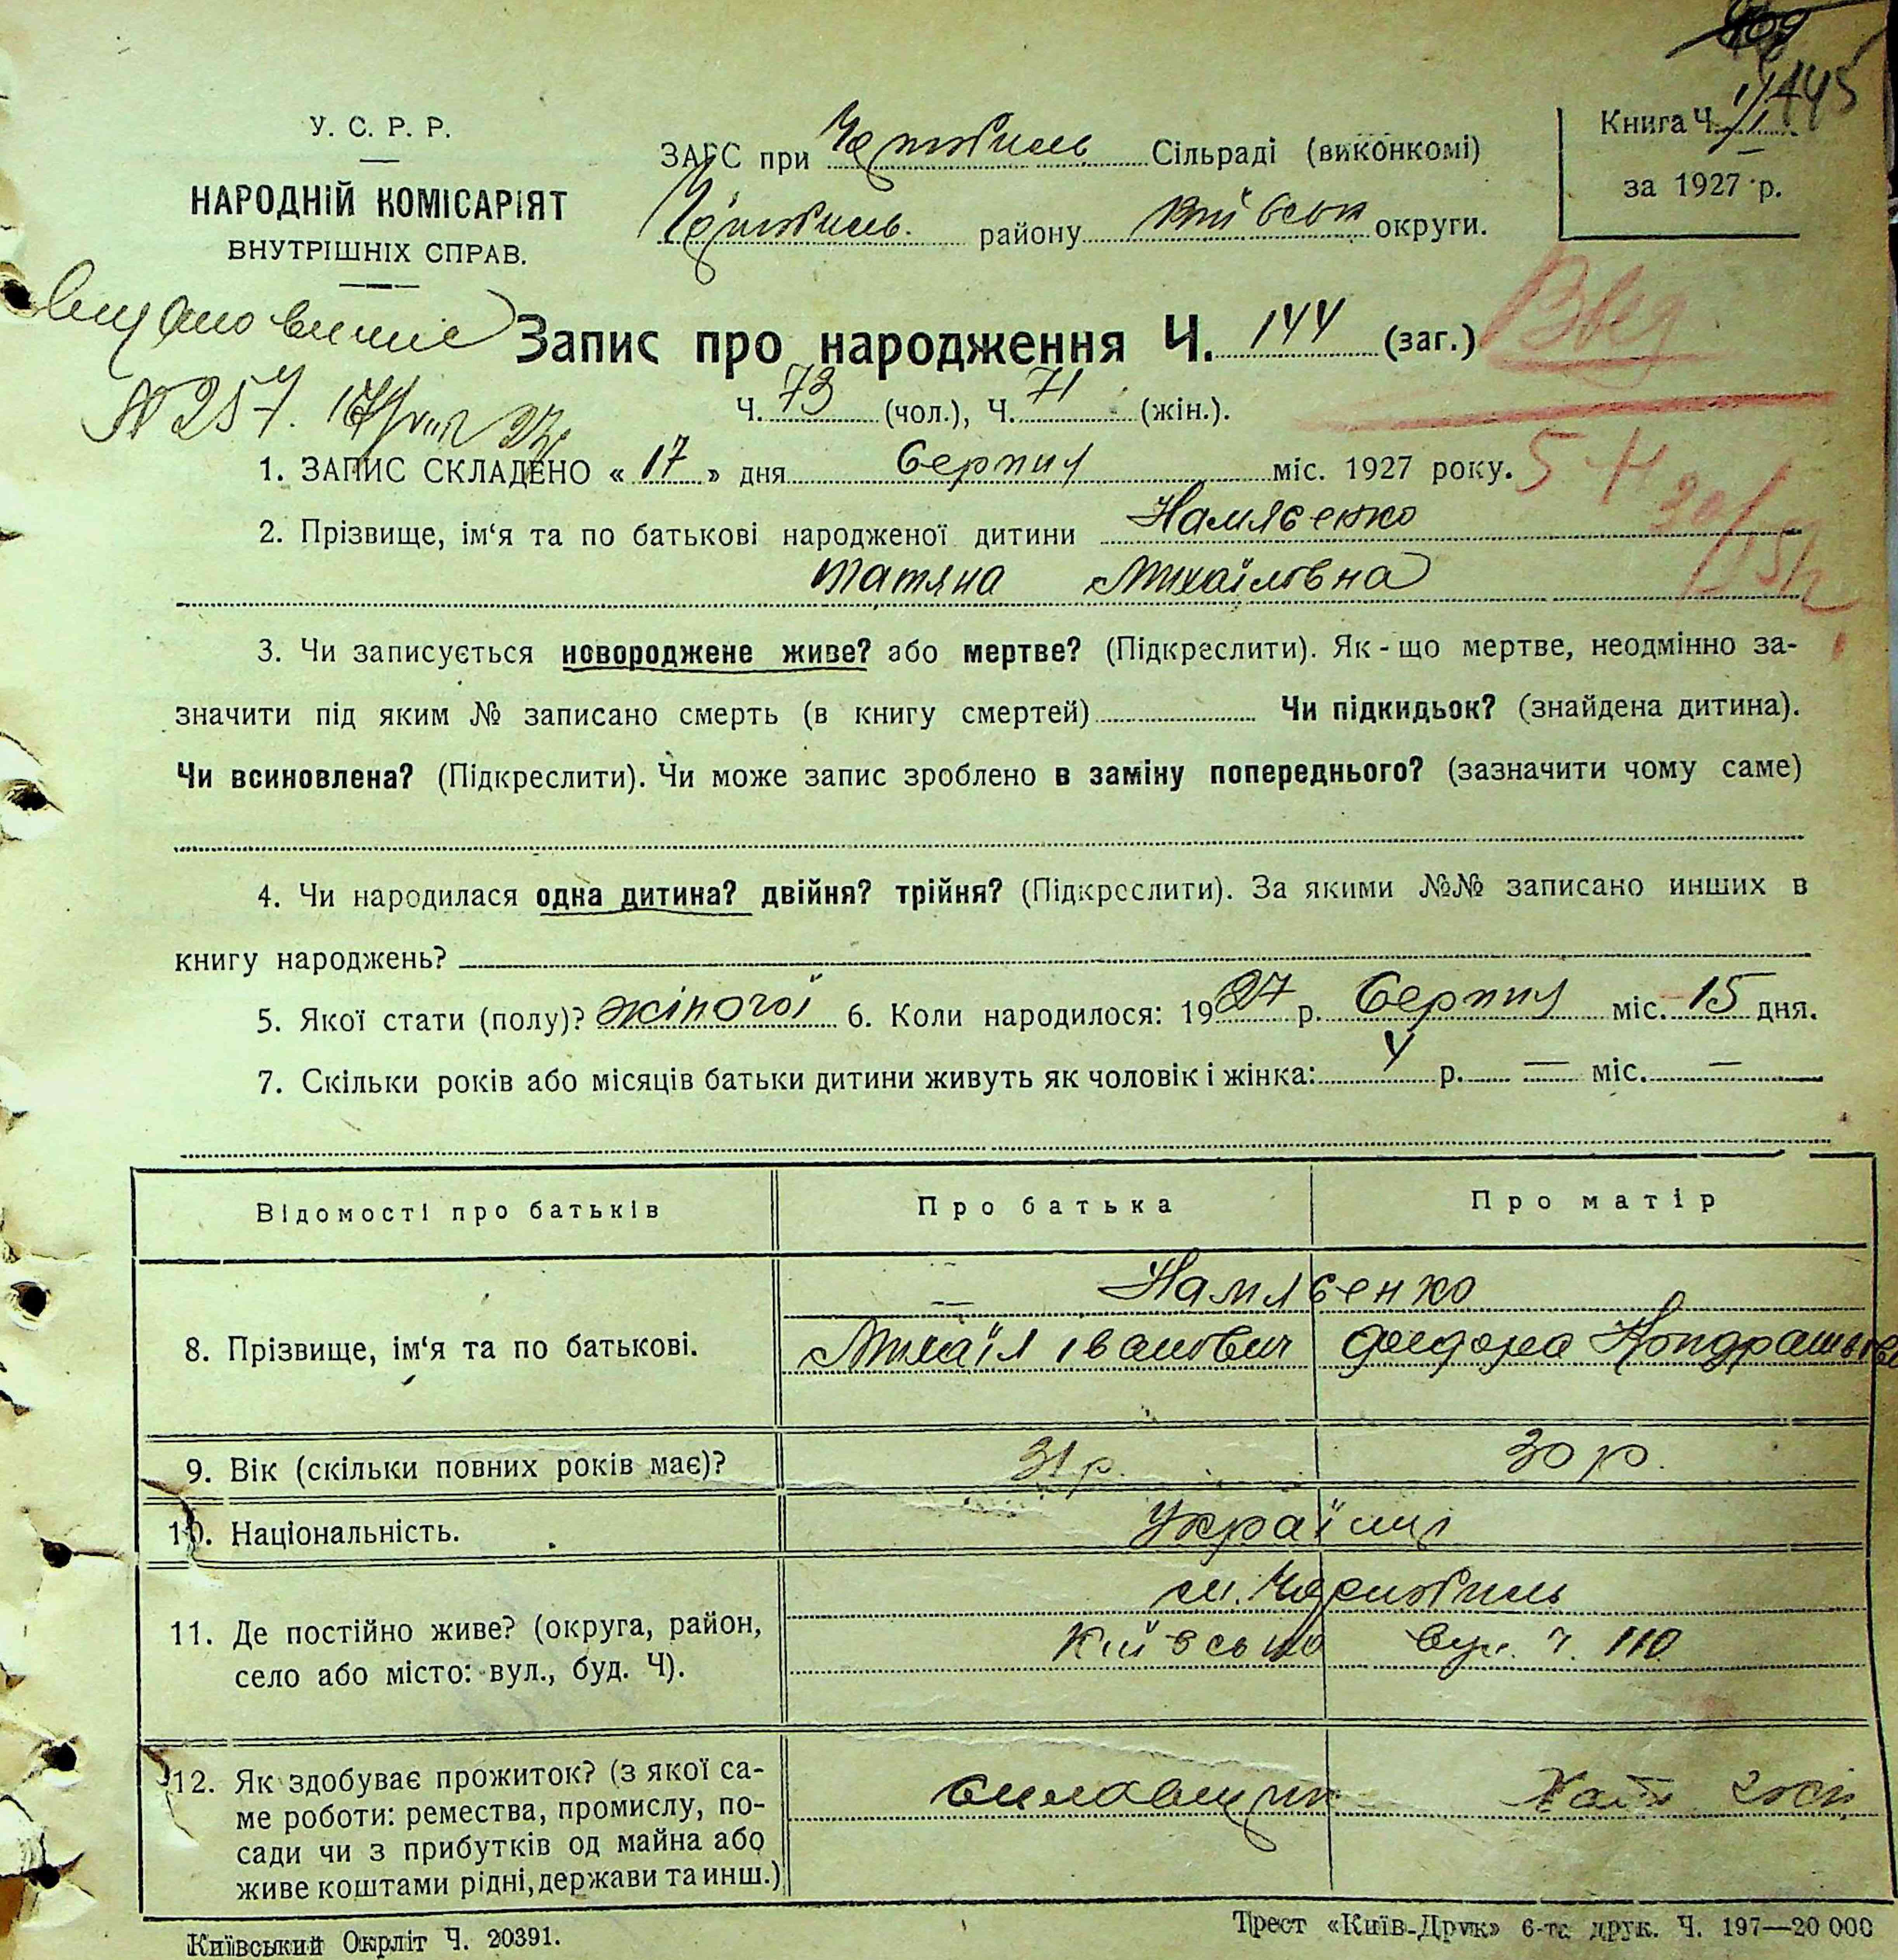 445
У. С. Р. Р.
НАРОДНІЙ КОМІСАРІЯТ
ВНУТРІШНІХ СПРАВ.
ЗАГС при Чорнобиль Сільраді (виконкомі)
Чорнобиль. району Київськ округи.
Книга Ч.
за 1927 р.
Запис про народження Ч. 144 (заг.)
№ 257.
Ч. 73 (чол.), Ч. 71 (жін.).
1. ЗАПИС СКЛАДЕНО « 17 » дня Серпня міс. 1927 року.
2. Прізвище, ім‘я та по батькові народженої дитини Намясенко
Татяна Михаїловна
3. Чи записується новороджене живе? або мертве? (Підкреслити). Як-що мертве, неодмінно за-
значити під яким № записано смерть (в книгу смертей) Чи підкидьок? (знайдена дитина).
Чи всиновлена? (Підкреслити). Чи може запис зроблено в заміну попереднього? (зазначити чому саме)
4. Чи народилася одна дитина? двійня? трійня? (Підкреслити). За якими №№ записано инших в
книгу народжень?
5. Якої стати (полу)? жіночої 6. Коли народилося: 1927 р. Серпня міс. 15 дня.
7. Скільки років або місяців батьки дитини живуть як чоловік і жінка: 4 р. — міс. —
Відомості про батьків Про батька Про матір
8. Прізвище, ім‘я та по батькові.
Намясенко
Михаїл Іванович
9. Вік (скільки повних років має)? 31 р. 30 р.
10. Національність. Українці
11. Де постійно живе? (округа, район,
село або місто: вул., буд. Ч).
м. Чорнобиль
Київська вул. ч. 110
12. Як здобуває прожиток? (з якої са-
ме роботи: ремества, промислу, по-
сади чи з прибутків од майна або
живе коштами рідні, держави та инш.)
Хатн госп
Київський Окрліт Ч. 20391.
Трест «Київ-Друк» 6-та друк. Ч. 197—20 000